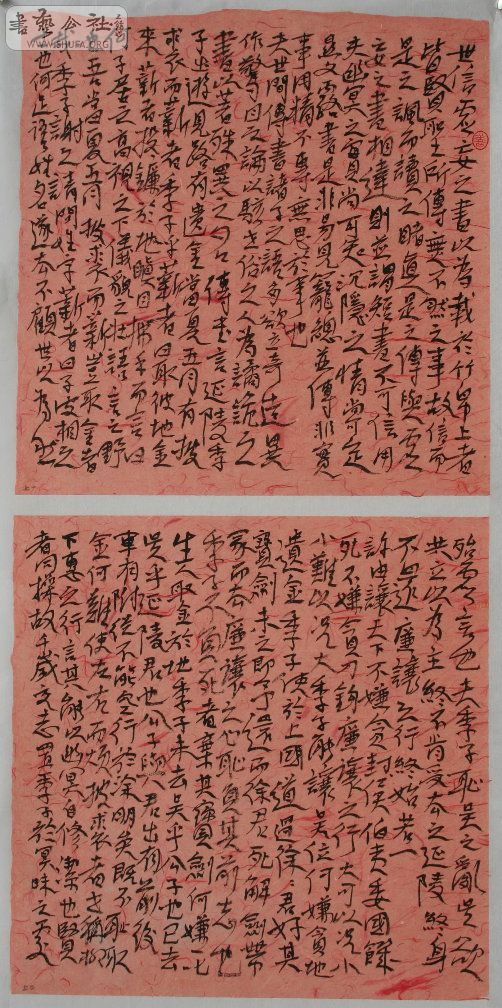 書藝公社
WWW.SHUFA.ORG
世信虛妄之書以為載於竹帛上者
皆賢聖所傳無不然之事故信而
是之諷而讀之睹真是之傳與虛
妄之書相違則並謂短書不可信用
夫幽冥之實尚可知沉隱之情尚可定
顯文露書是非易見籠總並傳非實
事用精不專無思於事也
夫世間傳書諸子之語多欲立奇造異
作驚目之論以駭世俗之人為譎詭之
書以著殊異之名傳書言延陵季
子出遊見路有遺金當夏五月有披
裘而薪者季子呼薪者曰取彼地金
來薪者投鐮於地瞋目拂手而言曰
何子居之高視之下儀貌之壯語言之野
也吾當夏五月披裘而薪豈取金者
哉季子謝之請問姓字薪者曰子皮相之
士也何足語姓名遂去不顧世以為然
殆虛言也夫季子恥吳之亂吳欲
共立以為主終不肯受去之延陵終身
不還廉讓之行終始若一
許由讓天下不嫌貪封侯伯夷委國饑
死不嫌貪刀鉤廉讓之行大可以況小
小難以況大季子能讓吳位何嫌貪地
遺金季子使於上國道過徐徐君好其
寶劍未之即予還而徐君死解劍帶
冢而去廉讓之心恥負其前志也
季子不負死者棄其寶劍何嫌一叱
生人取金於地季子未去吳乎公子也已去
吳乎延陵君也公子與君出有前後
車有附從不能空行於塗明矣既不恥取
金何難使左右而煩披裘者世稱柳
下惠之行言其能以幽冥自修潔也賢
者同操故千歲交志置季子於冥昧之處